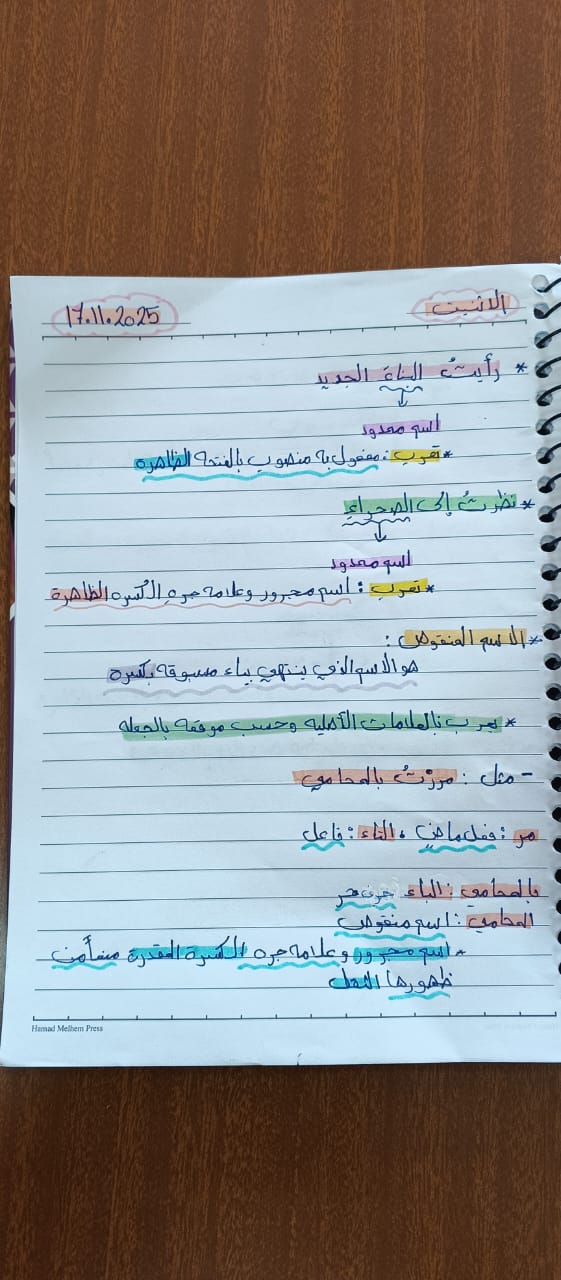 الاثنين
17.11.2025
* رأيتُ البناءَ الجديد
اسم ممدود
* تعرب : مفعول به منصوب بالفتحة الظاهرة
* نظرتُ إلى الصحراءِ
اسم ممدود
* تعرب : اسم مجرور وعلامة جره الكسرة الظاهرة
* الاسم المنقوص :
هو الاسم الذي ينتهي بياء مسبوقة بكسرة
* يعرب بالعلامات الأصلية وحسب موقعه بالجملة
- مثل : مررْتُ بالمحامي
مر : فعل ماضٍ ، التاء : فاعل
بالمحامي : الباء حرف جر
المحامي : اسم منقوص
* اسم مجرور وعلامة جره الكسرة المقدرة منع من
ظهورها الثقل
Hamad Melhem Press